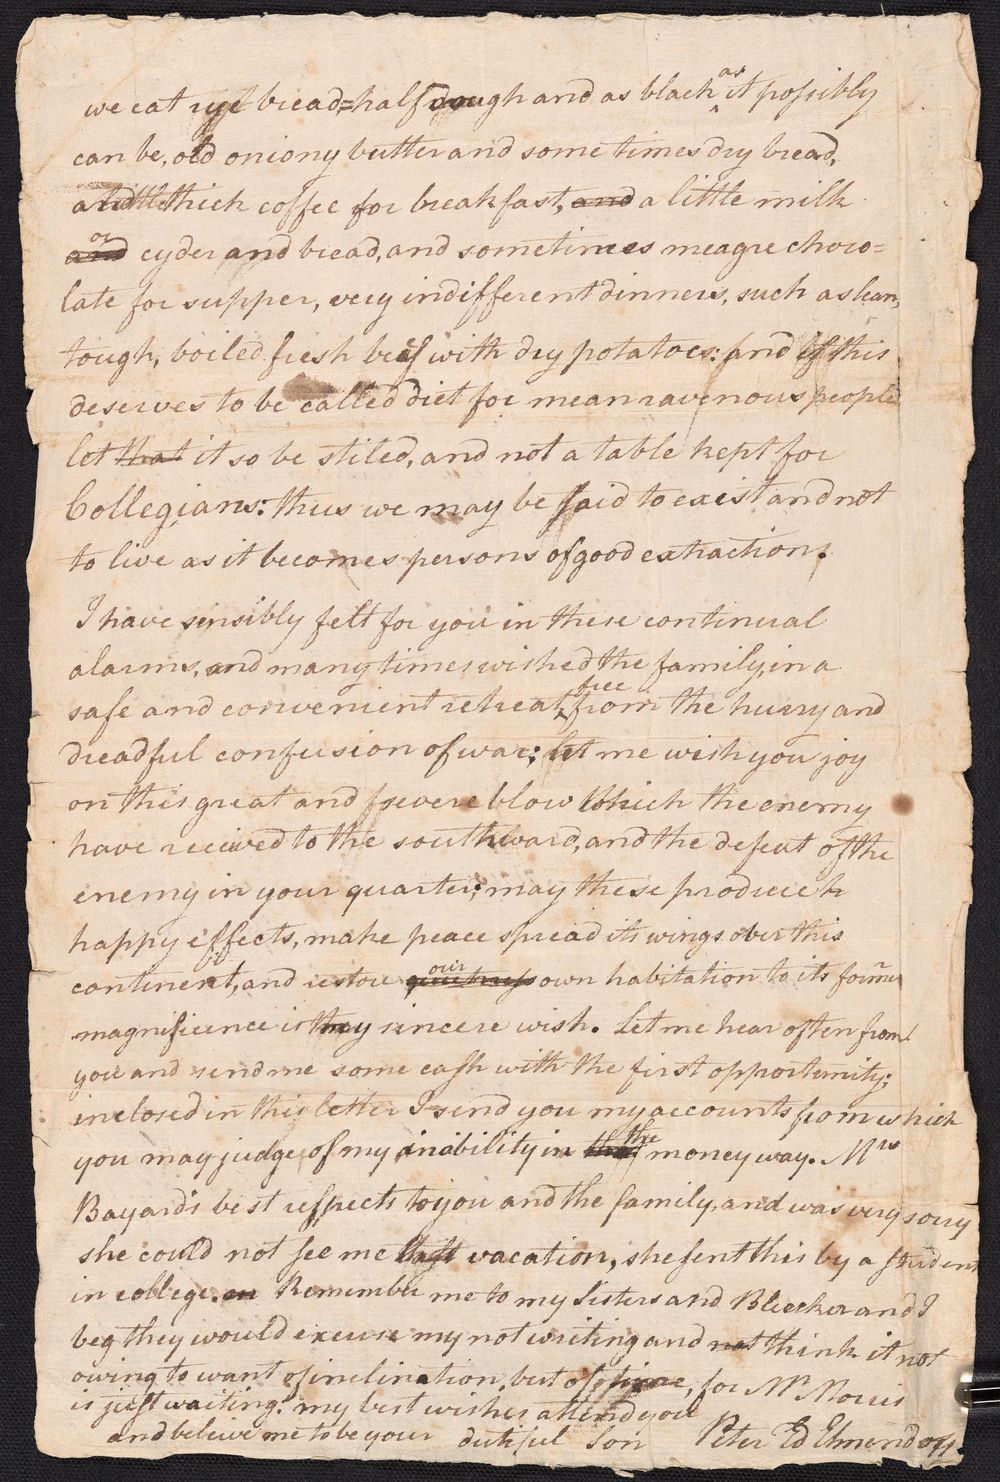 we eat rye bread=half dough and as black as it possibly
can be, old oniony butter and some times dry bread,
a little thick coffee for breakfast, and a little milk
and or cyder and bread, and sometimes meagre choco=
late for supper, very indifferent dinners, such as lean,
tough, boiled fresh beef with dry potatoes: and if this
deserves to be called diet for mean ravenous people
let that it so be stiled, and not a table kept for
Collegians: thus we may be said to exist and not
to live as it becomes persons of good extraction.
I have sensibly felt for you in these continual
alarms, and many times wished the family, in a
safe and convenient retreat, free from the hurry and
dreadful confusion of war; let me wish you joy
on this great and severe blow which the enemy
have received to the southward, and the defeat of the
enemy in your quarter; may these produce
happy effects, make peace spread its wings over this
continent, and restore quietness our own habitation to its former
magnificence is my sincere wish. Let me hear often from
you and send me some cash with the first opportunity;
inclosed in this letter I send you my accounts from which
you may judge of my inability in the money way. Mrs
Bayard's best respects to you and the family, and was very sorry
she could not see me last vacation, she sent this by a student
in college. Remember me to my Sisters and Bleecker and I
beg they would excuse my not writing and not think it not
owing to want of inclination, but of time, for Mr Norris
is just waiting. my best wishes attend you
and beleive me to be your dutiful Son Peter Ed Elmendorf.